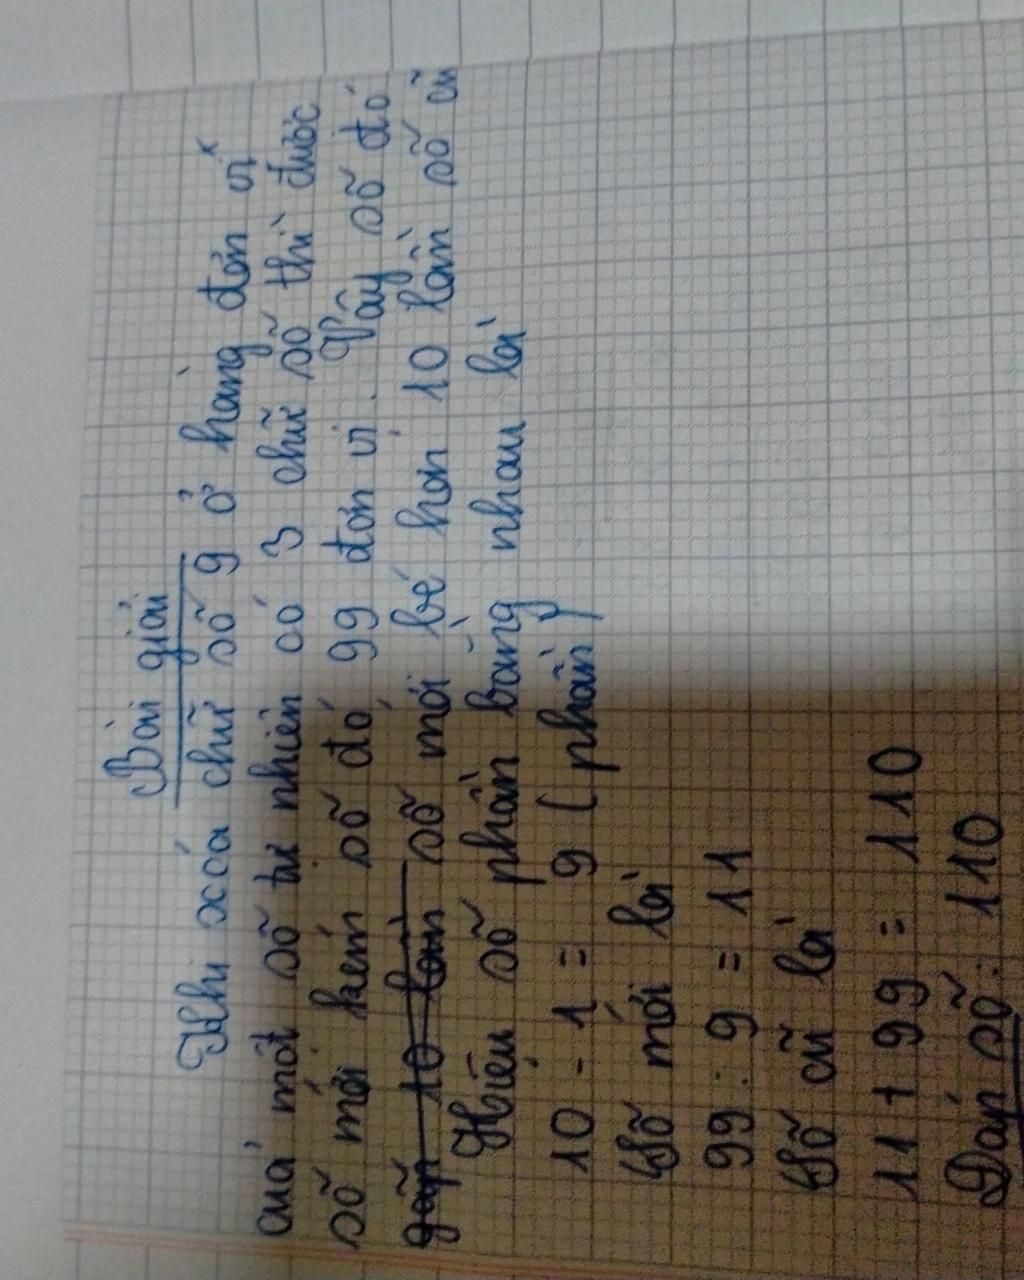 Bài giải
Khi xóa chữ số 9 ở hàng đơn vị
của một số tự nhiên có 3 chữ số thì được
số mới kém số đó 99 đơn vị. Vậy số đó
gấp 10 lần số mới bé hơn 10 lần số cũ
Hiệu số phần bằng nhau là
10 - 1 = 9 (phần)
Số mới là
99 : 9 = 11
Số cũ là
11 + 99 = 110
Đáp số: 110